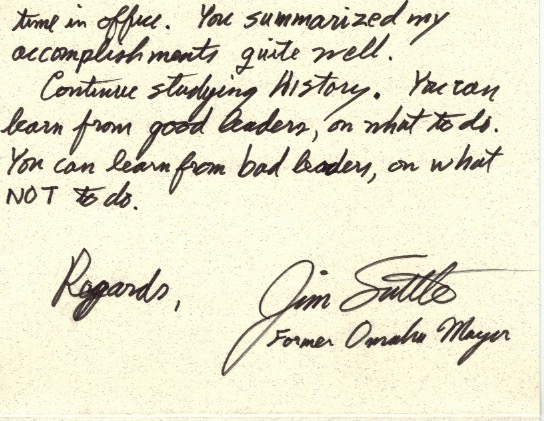 time in office. You summarized my
accomplishments quite well.
Continue studying History. You can
learn from good leaders, on what to do.
You can learn from bad leaders, on what
NOT to do.
Regards,
Jim Suttle
Former Omaha Mayor